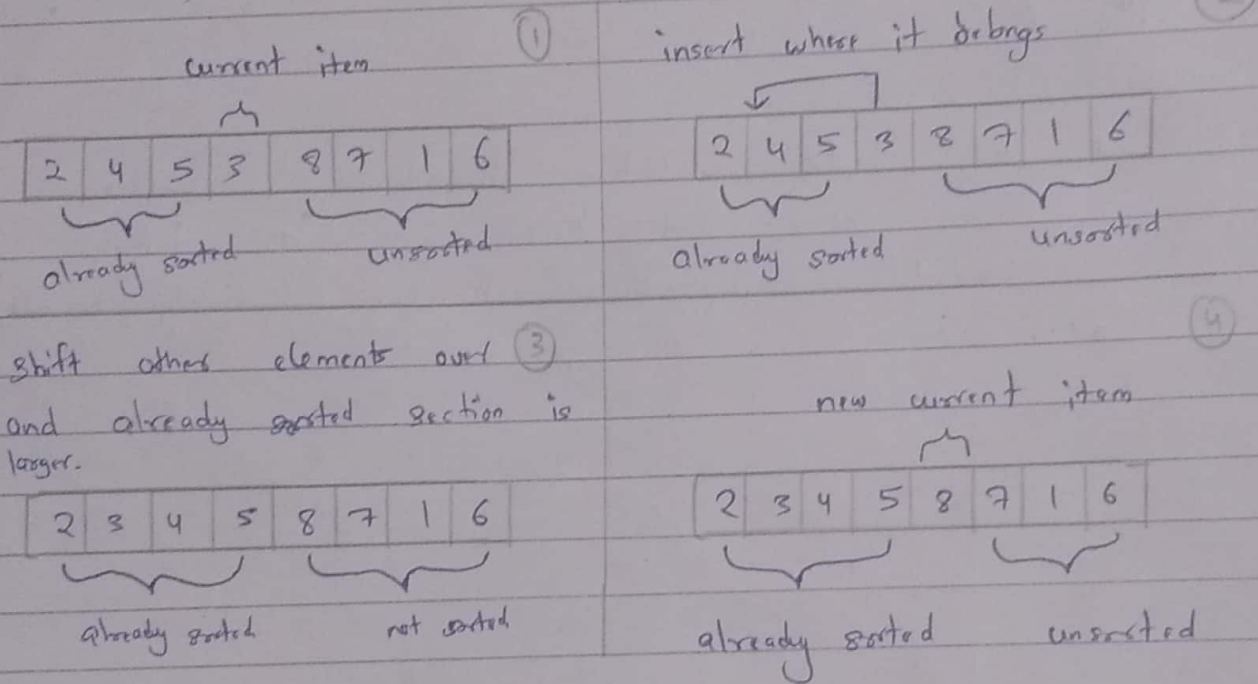 current item ①
2 4 5 3 8 7 1 6
already sorted unsorted
insert where it belongs
2 4 5 3 8 7 1 6
already sorted unsorted
shift other elements over ③
and already sorted section is
larger.
2 3 4 5 8 7 1 6
already sorted not sorted
④
new current item
2 3 4 5 8 7 1 6
already sorted unsorted